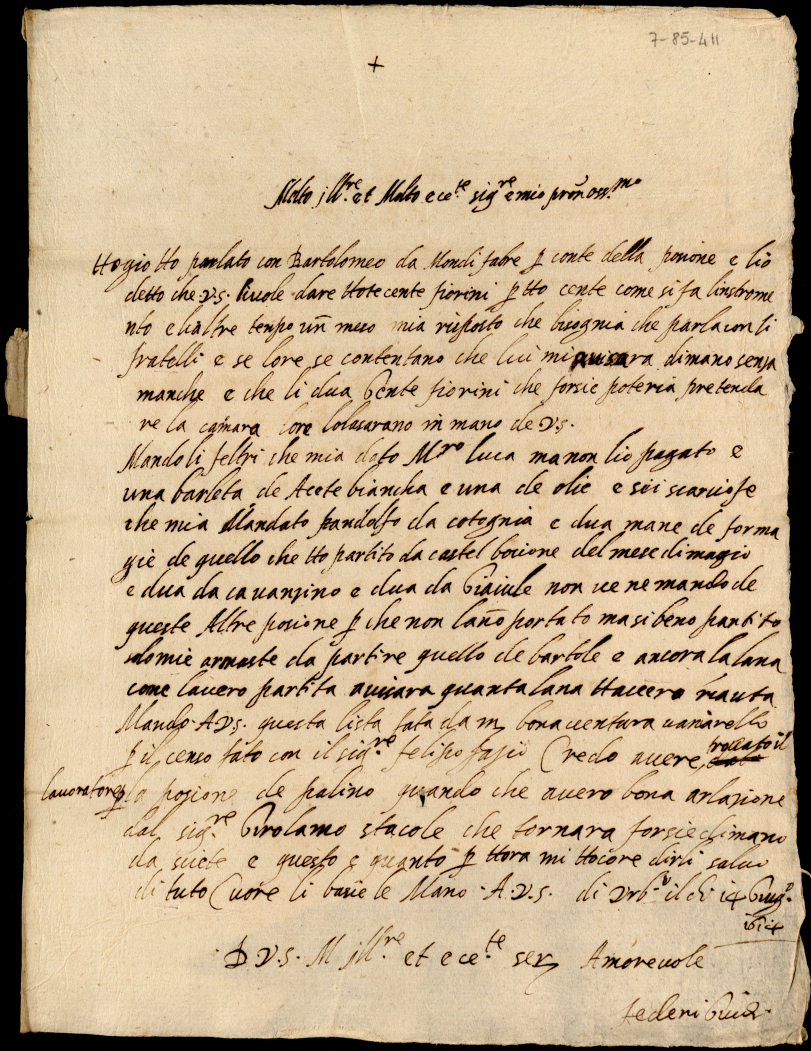 7-85-411
+
Molto jll.re et Molto ece.te sig.re e mio pron oss.mo
ttogio tto parlato con Bartolomeo da Mondi fabre p conte della posione e lio
detto che V.S. li vole dare ttotecente fiorini p tto cente come si fa linstrome
nto e laltre tenpo un meso mia risposto che bisognia che parla con li
fratelli e se lore se contentano che lui mi avisara dimano senza
manche e che li dua Cente fiorini che forsie poteria pretenda
re la camara lore lolasarano in mano de V.S.
Mando li feltri che mia dato M.ro luca ma non lio pagato e
una barleta de Acete biancha e una de olie e sei scarciofe
che mia Mandato pandolfo da cotognia e dua mane de forma
gie de quello che tto partito da castel bocione del mese di magio
e dua da cavansino e dua da Giaiule non ve ne mando de
queste Altre posione p che non lano portato ma si beno partito
solo mie armaste da partire quello de bartole e ancora la lana
come lavero partita avisara quanta lana ttavero riauta
Mando A V.S. questa lista fata da m bonaventura vanarello
p il censo fato con il sig.re felipo fasio Credo avere trovato il
lavoratore p la posione de palino quando che avero bona arlasione
dal sig.re Girolamo stacole che tornara forsie dimano
da sciete e questo e quanto p ttora mi ttocore dirli salvo
di tuto Cuore li basie le Mano A V.S. di Urb.o il di 14 Giug.o
1614
D V.S. M jll.re et ece.te ser Amorevole
federi Guid